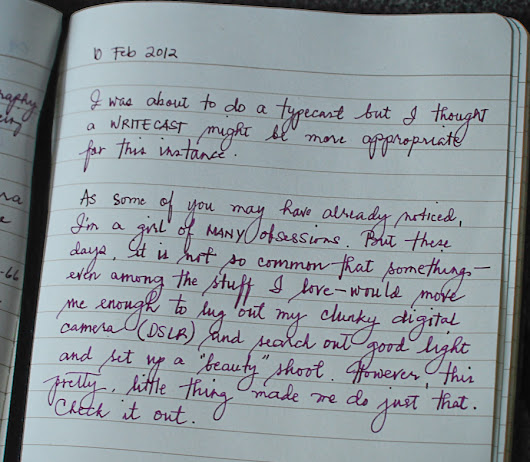 10 Feb 2012
I was about to do a typecast but I thought
a WRITECAST might be more appropriate
for this instance.
As some of you may have already noticed,
I'm a girl of MANY obsessions. But these
days, it is not so common that something—
even among the stuff I love—would move
me enough to lug out my clunky digital
camera (DSLR) and search out good light
and set up a "beauty" shoot. However, this
pretty, little thing made me do just that.
Check it out.